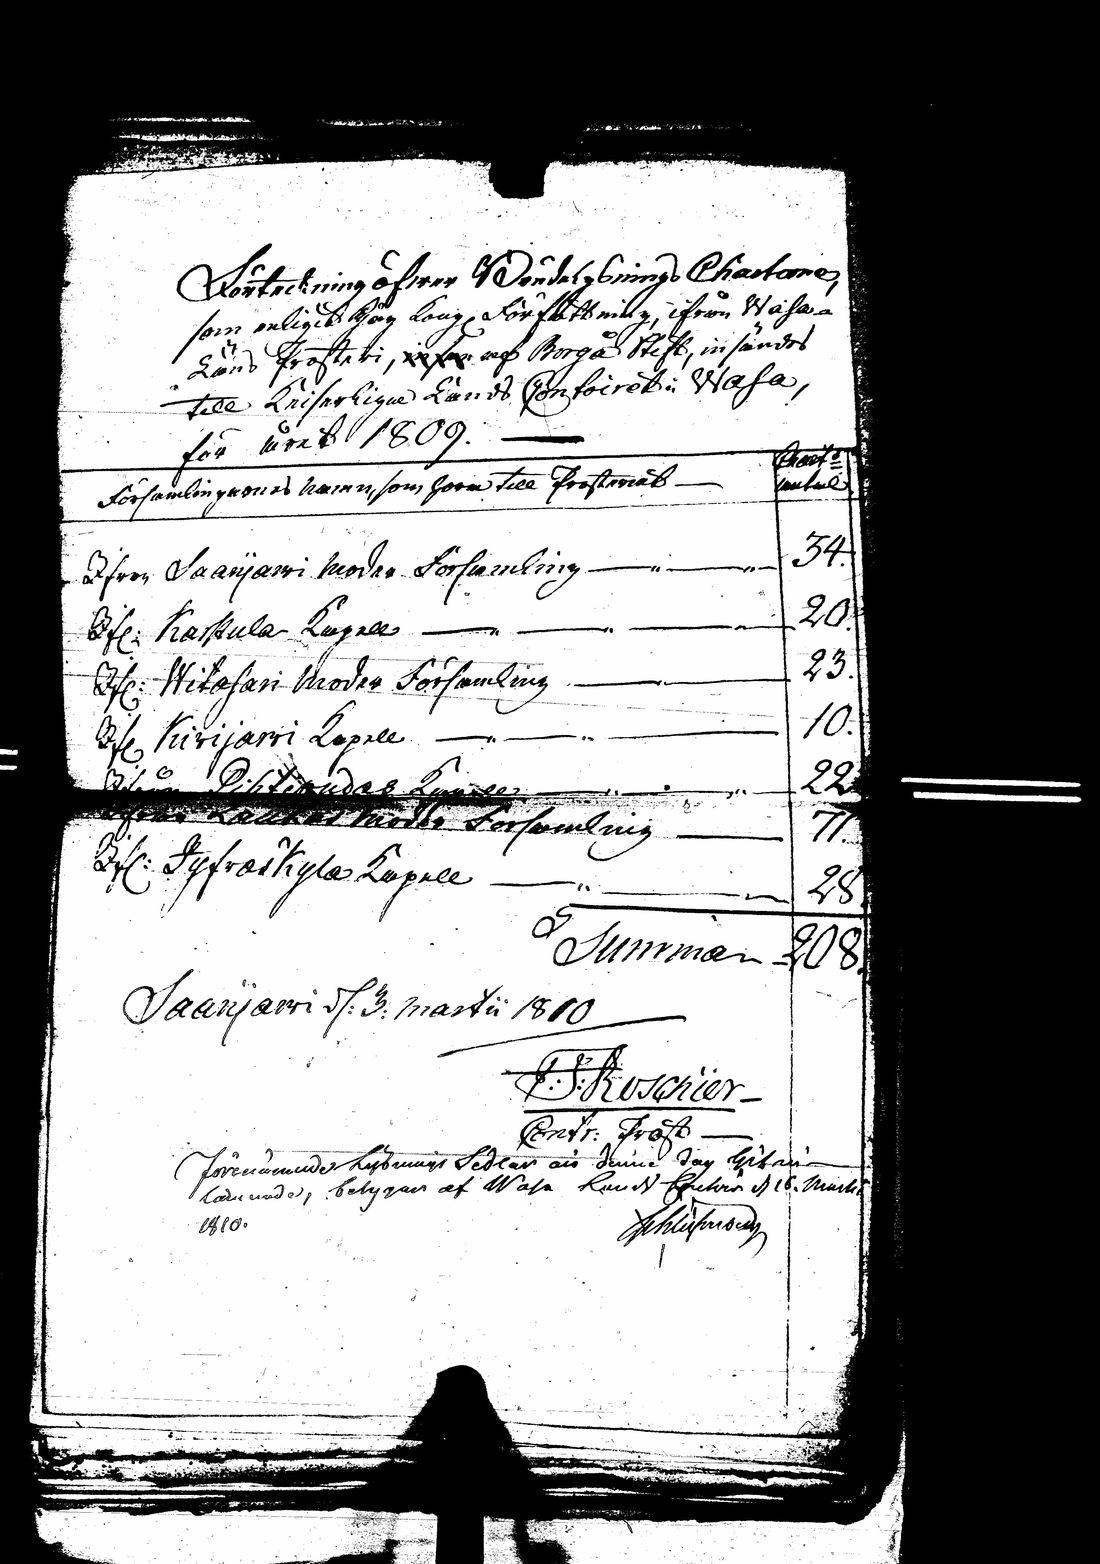 Förteckning öfwer Wändelysnings Chartorne,
som enligit Hög Kongl. Författning, ifrån Wasa
Läns Prosteri, af Borgå Stift, insändes
till Keiserligne Lands Contoiret i Wasa,
för året 1809.
Församlingarnes namn, som höra till Prosteriet Chart: antal
Ifrån Saarijärwi Moder Församling 34.
If: Karstula Kapell 20.
If: Witasari Moder Församling 23.
If: Kiwijärwi Kapell 10.
Ifrån Pihtipudas Kapell 22
Ifrån Laukas Moder Församling 71.
If: Jyfwäskylä Kapell 28.
Summa 208.
Saarijärwi d: 3: Martii 1810
Roschier
Contr: Prost
Förenämnde Lysnings Sedlar äro denne dag
betygar af Wasa Lands Contoir d 16. Martii
1810.